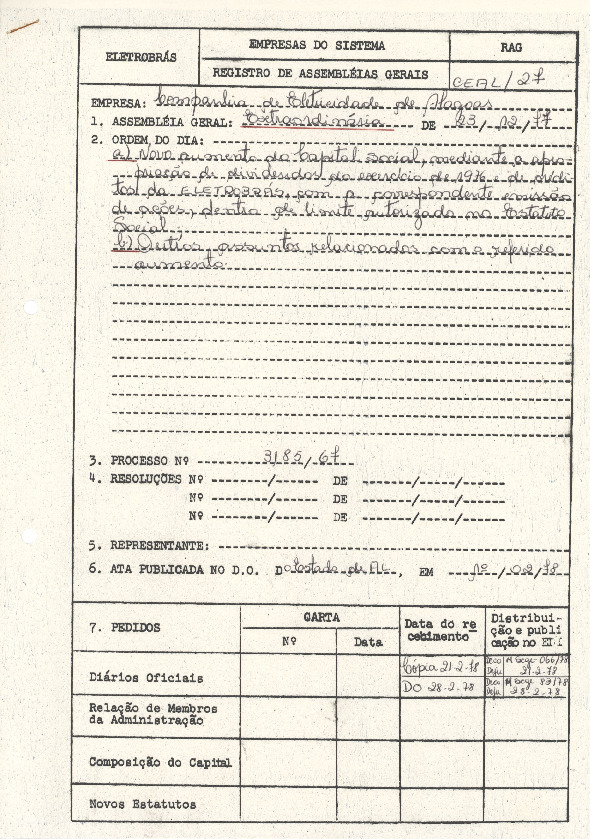 ELETROBRÁS
EMPRESAS DO SISTEMA
RAG
REGISTRO DE ASSEMBLÉIAS GERAIS
CEAL/27
EMPRESA: Companhia de Eletricidade de Alagoas
1. ASSEMBLÉIA GERAL: Extraordinária DE 23/12/77
2. ORDEM DO DIA:
a) Novo aumento do Capital Social, mediante a apro-
priação de dividendos do exercício de 1976 e de crédi-
tos da ELETROBRÁS, com a correspondente emissão
de ações, dentro do limite autorizado no Estatuto
Social;
b) Outros assuntos relacionados com o referido
aumento.
3. PROCESSO Nº 3185/67
4. RESOLUÇÕES Nº / DE / /
Nº / DE / /
Nº / DE / /
5. REPRESENTANTE:
6. ATA PUBLICADA NO D.O. Do Estado de AL, EM /02/78
7. PEDIDOS
CARTA
Nº
Data
Data do re
cebimento
Distribui-
ção e publi
cação no
Diários Oficiais
Cópia 21-2-78
DO 28-2-78
066/78
21-2-78
83/78
28-2-78
Relação de Membros
da Administração
Composição do Capital
Novos Estatutos